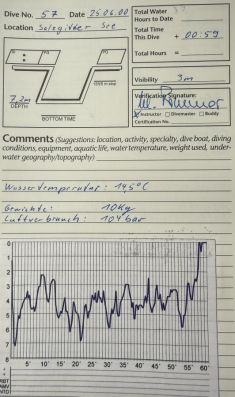 Dive No. 57 Date 25.06.00
Location Salzgitter See
Total Water
Hours to Date
Total Time
This Dive + 00:59
Total Hours =
7.2m
DEPTH
BOTTOM TIME
Visibility 3m
Verification Signature:
Instructor Divemaster Buddy
Certification No.
Comments (Suggestions: location, activity, specialty, dive boat, diving
conditions, equipment, aquatic life, water temperature, weight used, under-
water geography/topography)
Wassertemperatur: 19,5°C
Gewichte: 10Kg
Luftverbrauch: 104 bar
0
1
2
3
4
5
6
7
8
5' 10' 15' 20' 25' 30' 35' 40' 45' 50' 55' 60'